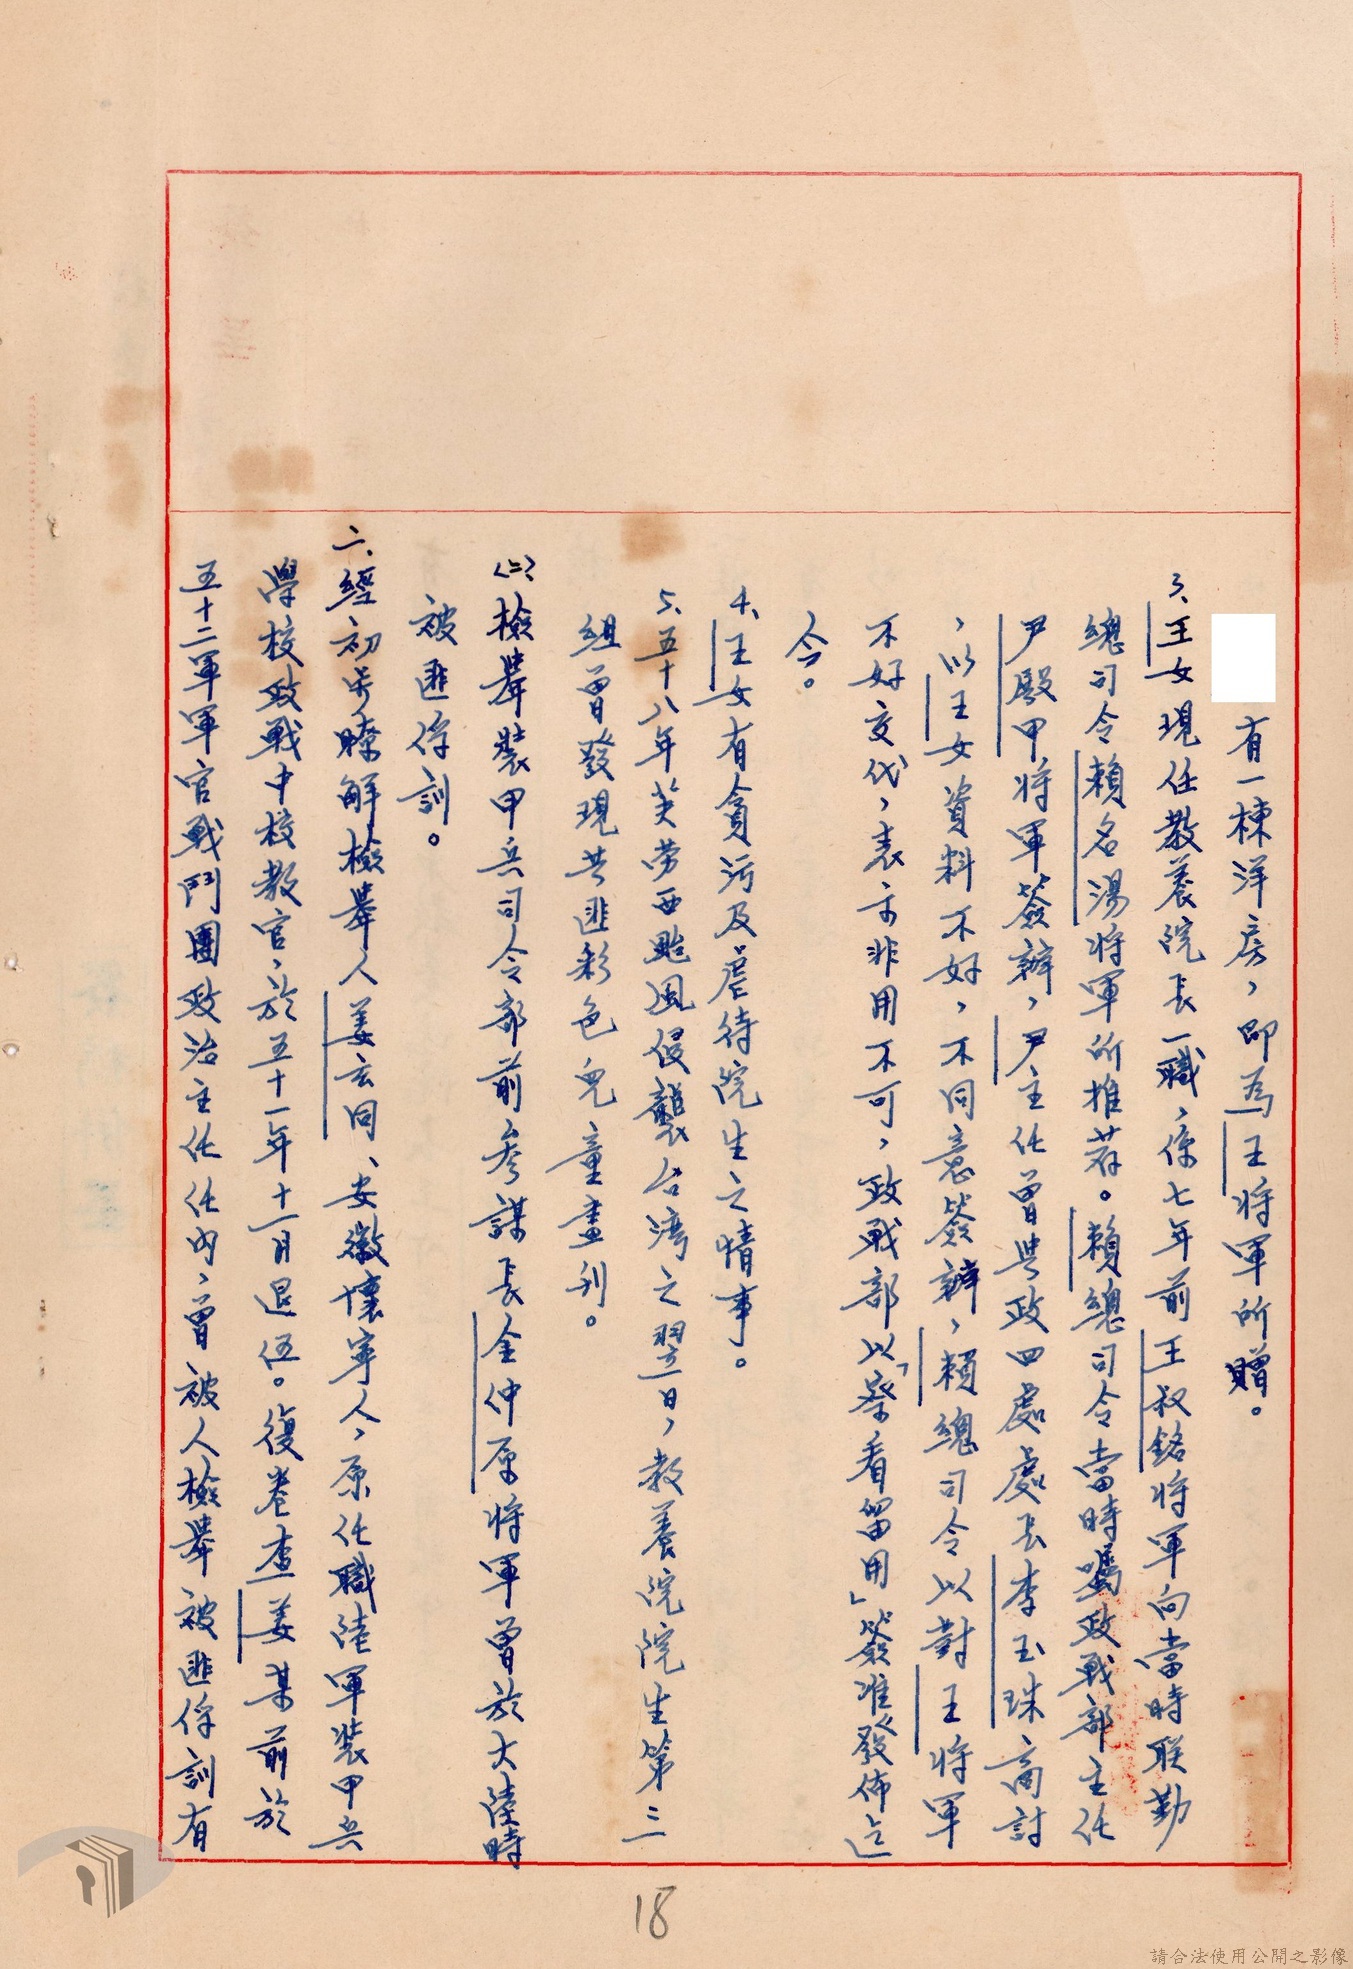 有一棟洋房，即為王將軍所贈。
3、王女現任教養院長一職，係七年前王叔銘將軍向當時联勤
總司令賴名湯將軍所推荐。賴總司令當時囑政戰部主任
尹殿甲將軍簽辦，尹主任曾與政四處處長李玉珠商討
，以王女資料不好，不同意簽辦，賴總司令以對王將軍
不好交代，表示非用不可，政戰部以「察看留用」簽准發佈迄
今。
4、王女有貪污及虐待院生之情事。
5、五十八年芙劳西颱風侵襲台湾之翌日，教養院院生第三
組曾發現共匪彩色兒童畫刊。
㈡檢舉裝甲兵司令部前參謀長金仲原將軍曾於大陸時
被匪俘訓。
二、經初步瞭解檢舉人姜玄同、安徽懷寧人，原任職陸軍裝甲兵
學校政戰中校教官，於五十一年十一月退伍。復卷查姜某前於
五十二軍軍官戰鬥團政治主任任內，曾被人檢舉被匪俘訓有
18
請合法使用公開之影像